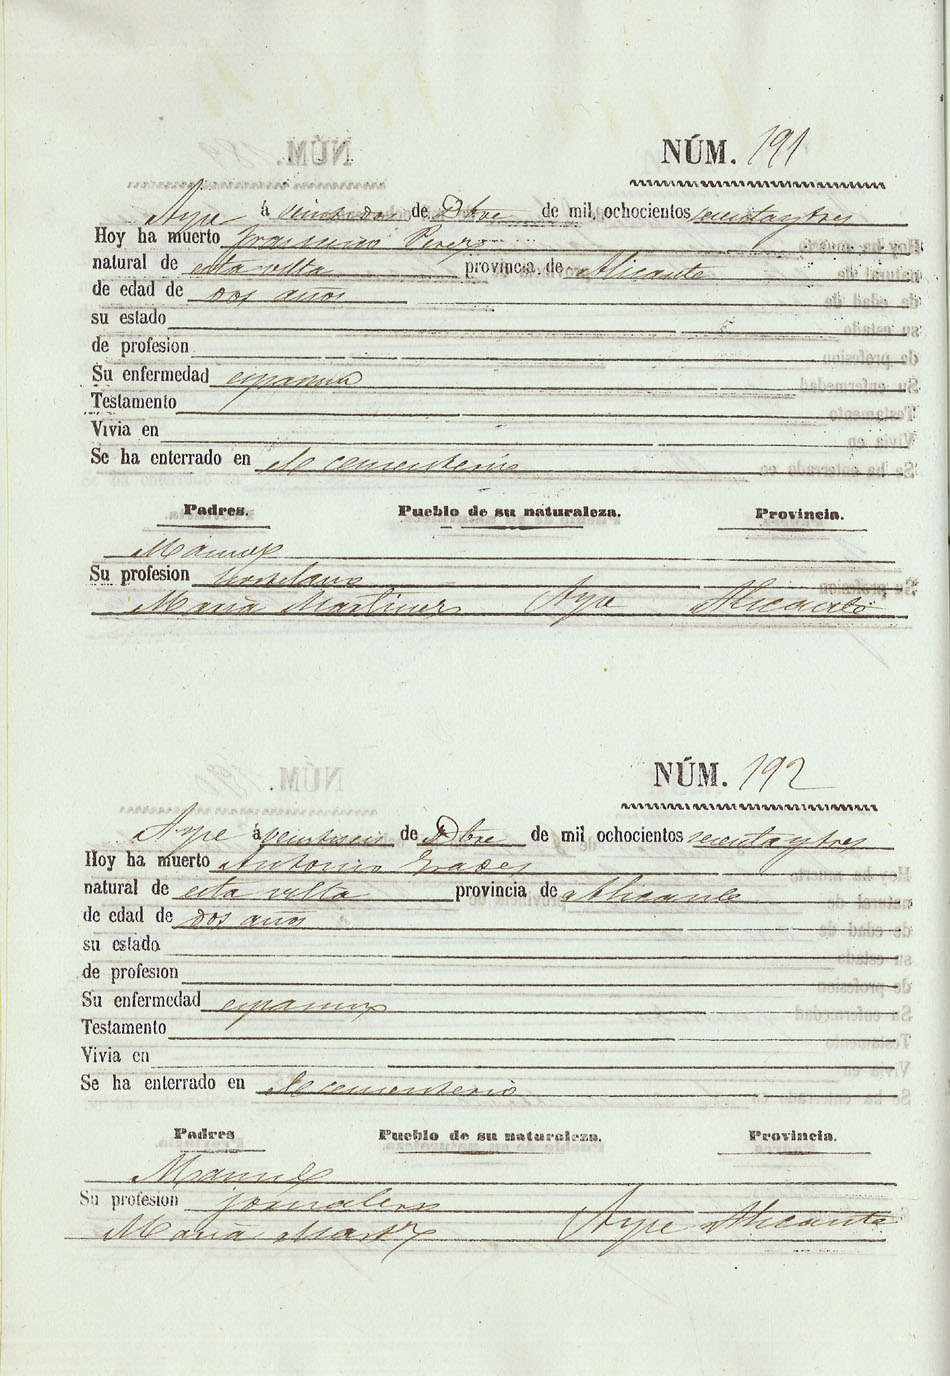 NÚM. 191
Aspe á veintidos de Dbre de mil ochocientos sesentaytres
Hoy ha muerto Francisco Perez
natural de esta villa provincia de Alicante
de edad de dos años
su estado
de profesion
Su enfermedad
Testamento
Vivia en
Se ha enterrado en el cementerio
Padres. Pueblo de su naturaleza. Provincia.
Manuel
Su profesion hortelano
Maria Martinez Aspe Alicante
NÚM. 192
Aspe á veintiseis de Dbre de mil ochocientos sesentaytres
Hoy ha muerto Antonio
natural de esta villa provincia de Alicante
de edad de dos años
su estado
de profesion
Su enfermedad
Testamento
Vivia en
Se ha enterrado en el cementerio
Padres Pueblo de su naturaleza. Provincia.
Manuel
Su profesion jornalero
Maria Aspe Alicante